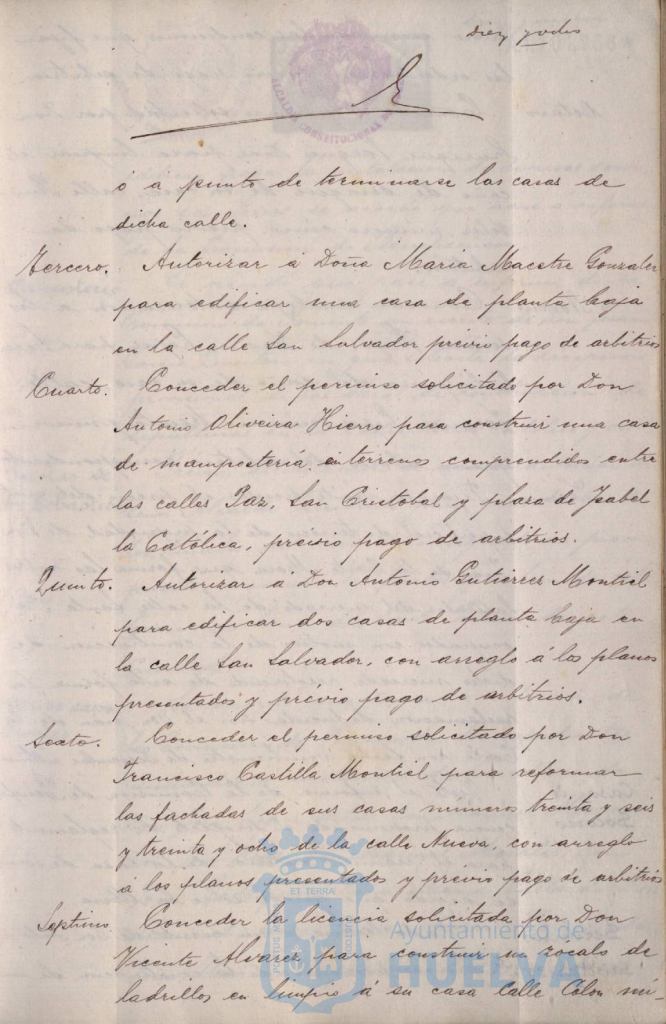 diez y ocho
ó a punto de terminarse las casas de
dicha calle.
Tercero. Autorizar á Doña Maria Maestre Gonzalez
para edificar una casa de planta baja
en la calle San Salvador prévio pago de arbitrios
Cuarto. Conceder el permiso solicitado por Don
Antonio Oliveira Hierro para construir una casa
de mampostería en terrenos comprendidos entre
las calles Paz, San Cristobal y plaza de Isabel
la Católica, prévio pago de arbitrios.
Quinto. Autorizar á Don Antonio Gutierrez Montiel
para edificar dos casas de planta baja en
la calle San Salvador, con arreglo á los planos
presentados y prévio pago de arbitrios.
Sexto. Conceder el permiso solicitado por Don
Francisco Castilla Montiel para reformar
las fachadas de sus casas números treinta y seis
y treinta y ocho de la calle Nueva, con arreglo
á los planos presentados y prévio pago de arbitrios
Septimo Conceder la licencia solicitada por Don
Vicente Alvarez para construir un zócalo de
ladrillos en limpio á su casa Calle Colon nú-
Ayuntamiento de
HUELVA